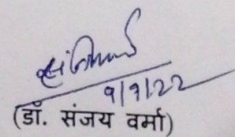 9/9/22
(डॉ. संजय वर्मा)